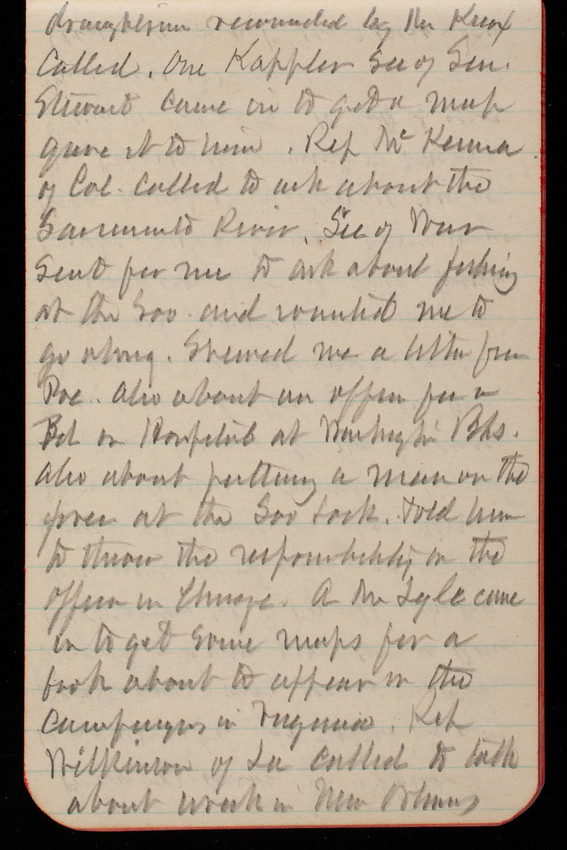 draughtsman recommended by Mr Knox
called. One Kappler Sec of Sen.
Stewart came in to get a map
gave it to him. Rep McKenna
of Cal. called to ask about the
Sacramento River. Sec of War
sent for me to ask about fishing
at the Soo and wanted me to
go along. Showed me a letter from
Poe. Also about an officer for a
Bd on Hospital at Washington Bks.
Also about putting a man on the
force at the Soo Lock. Told him
to throw the responsibility on the
officer in Charge. A Mr Lyle came
in to get some maps for a
book about to appear on the
campaigns in Virginia. Rep
Wilkinson of La called to talk
about work in New Orleans